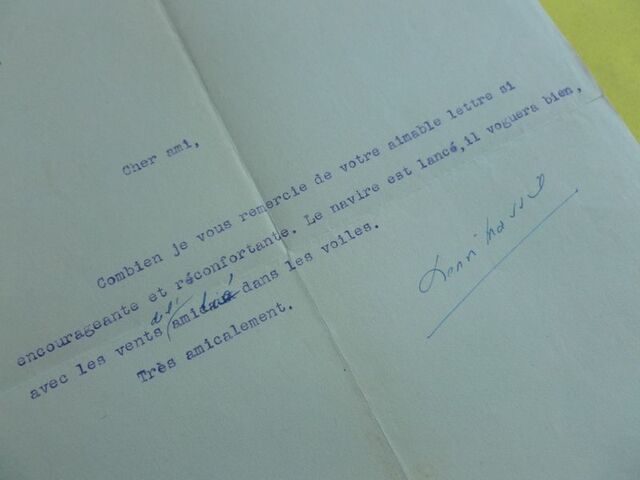 Cher ami,
Combien je vous remercie de votre aimable lettre si
encourageante et réconfortante. Le navire est lancé, il voguera bien,
avec les vents de l'amitié dans les voiles.
Très amicalement.